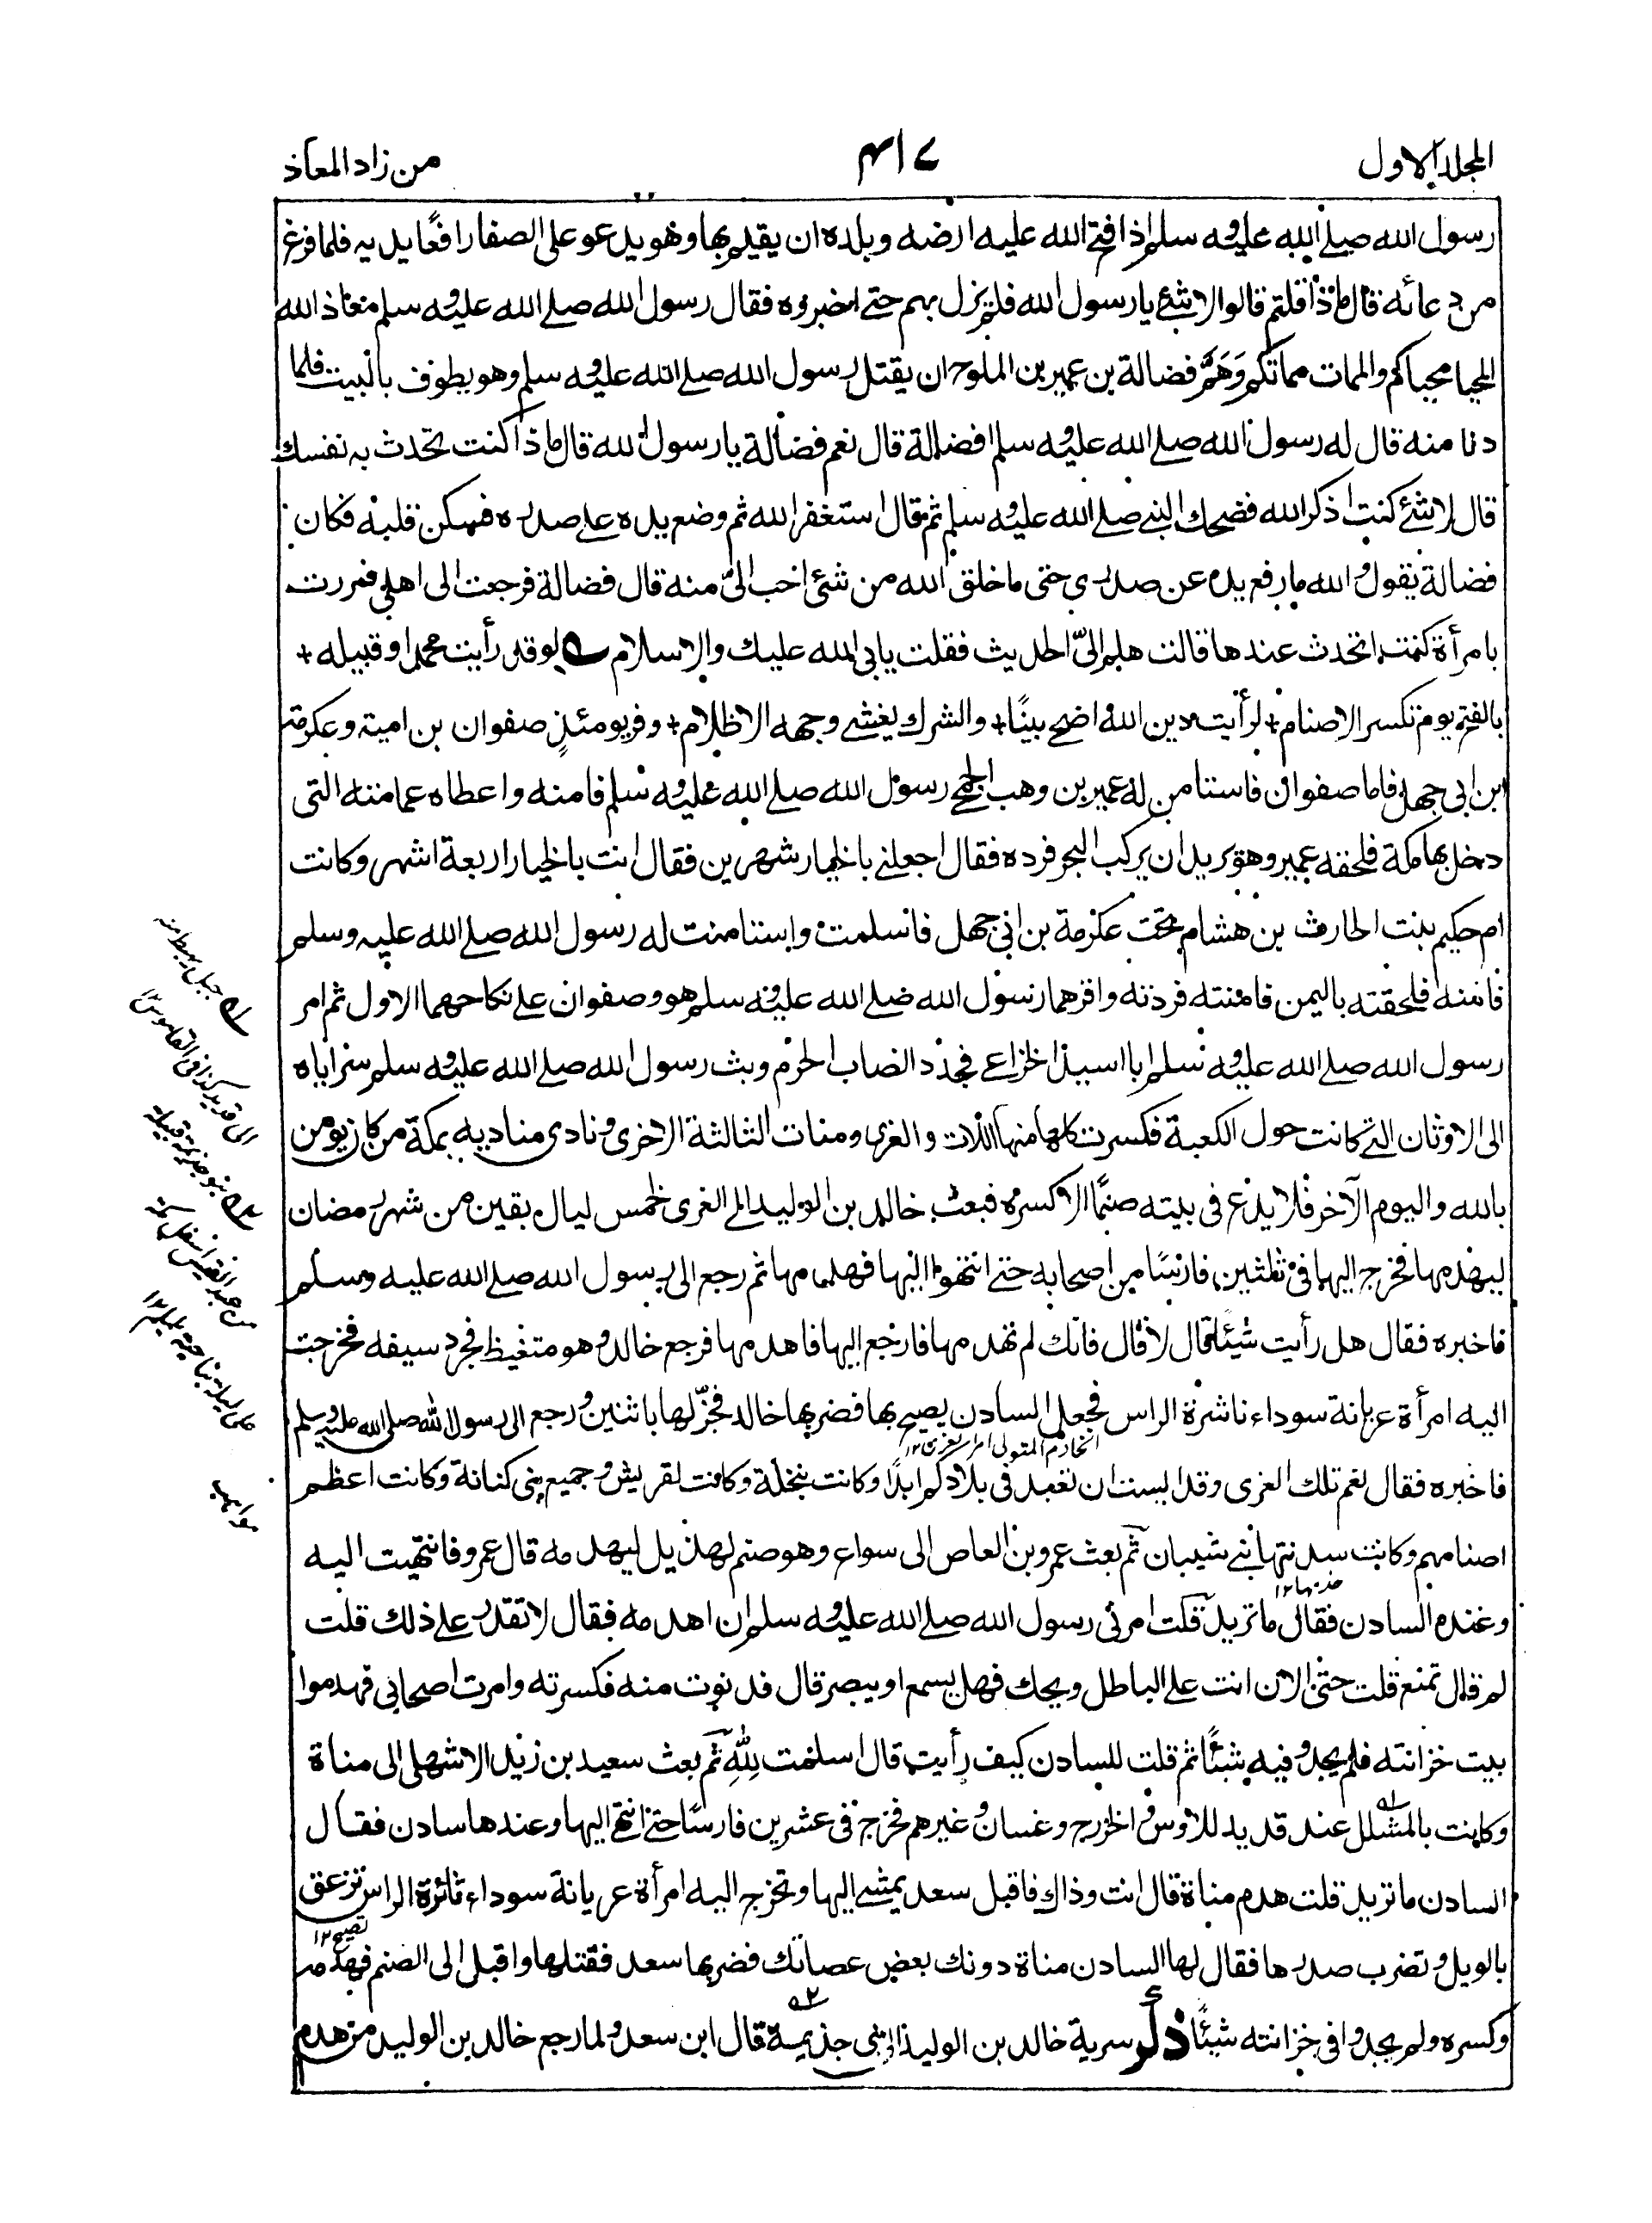 المجلد الاول
٤١٧
من زاد المعاد
رسول الله صلے الله عليه وسلم اذا فتح الله عليه ارضه وبلده ان يقيم بها وهو يدعو على الصفا رافعًا يديه فلما فرغ
من دعائه قال ماذا قلتم قالوا لا شئ يا رسول الله فلم يزل بهم حتے اخبروه فقال رسول الله صلے الله عليه وسلم معاذ الله
المحيا محياكم والممات مماتكم وَهَمَّ فضالة بن عمير بن الملوح ان يقتل رسول الله صلے الله عليه وسلم وهو يطوف بالبيت فلما
دنا منه قال له رسول الله صلے الله عليه وسلم افضالة قال نعم فضالة يا رسول الله قال ماذا كنت تحدث به نفسك
قال لا شئ كنت اذكر الله فضحك النبے صلے الله عليه وسلم ثم قال استغفر الله ثم وضع يده علے صدره فسكن قلبه فكان
فضالة يقول والله ما رفع يده عن صدري حتى ما خلق الله من شئ احب الىّ منه قال فضالة فرجعت الى اهلي فمررت
بامرأة كنت اتحدث عندها قالت هلم الىّ الحديث فقلت يابى الله عليك والاسلام لو قد رأيت محمدا وقبيله +
بالفتح يوم تكسر الاصنام + لرأيت دين الله واضح بينًا + والشرك يغشے وجهه الاظلام + وفر يومئذٍ صفوان بن امية وعكرمة
ابن ابى جهل فاما صفوان فاستامن له عمير بن وهب الجمحے رسول الله صلے الله عليه وسلم فامنه واعطاه عمامته التى
دخل بها مكة فلحقه عمير وهو يريد ان يركب البحر فرده فقال اجعلنے بالخيار شهرين فقال انت بالخيار اربعة اشهر وكانت
ام حكيم بنت الحارث بن هشام تحت عكرمة بن ابى جهل فاسلمت واستامنت له رسول الله صلے الله عليه وسلم
فامنه فلحقته باليمن فامنته فردته واقرهما رسول الله صلے الله عليه وسلم هو وصفوان علے نكاحهما الاول ثم امر
رسول الله صلے الله عليه وسلم ابا اسيد الخزاعے فجدد انصاب الحرم وبث رسول الله صلے الله عليه وسلم سراياه
الى الاوثان التے كانت حول الكعبة فكسرت كلها منها اللات والعزى ومنات الثالثة الاخرى ونادى مناديه بمكة من كان يومن
بالله واليوم الآخر فلا يدع فى بيته صنمًا الا كسره فبعث خالد بن الوليد الى العزى لخمس ليال بقين من شهر رمضان
ليهدمها فخرج اليها فى ثلثين فارسًا من اصحابه حتے انتهوا اليها فهدمها ثم رجع الى رسول الله صلے الله عليه وسلم
فاخبره فقال هل رأيت شيئا قال لا قال فانك لم تهدمها فارجع اليها فاهدمها فرجع خالد وهو متغيظ فجرد سيفه فخرجت
اليه امرأة عريانة سوداء ناشرة الراس فجعل السادن يصيح بها فضربها خالد فجزّلها باثنين ورجع الى رسول الله صلى الله عليه وسلم
فاخبره فقال نعم تلك العزى وقد ايست ان تعبد فى بلادكم ابدًا وكانت بنخلة وكانت لقريش وجميع بنى كنانة وكانت اعظم
اصنامهم وكانت سدنتها بنے شيبان ثم بعث عمرو بن العاص الى سواع وهو صنم لهذيل ليهدمه قال عمرو فانتهيت اليه
وعنده السادن فقال ما تريد قلت امرنى رسول الله صلے الله عليه وسلم ان اهدمه فقال لا تقدر علے ذلك قلت
لم قال تمنع قلت حتى الان انت علے الباطل ويحك فهل يسمع او يبصر قال فدنوت منه فكسرته وامرت اصحابى فهدموا
بيت خزانته فلم يجدوا فيه شيئًا ثم قلت للسادن كيف رأيت قال اسلمت لِلّٰهِ ثم بعث سعيد بن زيد الاشهلى الى مناة
وكانت بالمشلل عند قديد للاوس والخزرج وغسان وغيرهم فخرج فى عشرين فارسًا حتے انتهے اليها وعندها سادن فقال
السادن ما تريد قلت هدم مناة قال انت وذاك فاقبل سعد يمشے اليها وتخرج اليه امرأة عريانة سوداء ثائرة الراس تزعق
بالويل وتضرب صدرها فقال لها السادن مناة دونك بعض عصاتك فضربها سعد فقتلها واقبل الى الصنم فهدمه
وكسره ولم يجدوا فى خزانته شيئًا ذكر سرية خالد بن الوليد الى بنى جذيمة قال ابن سعد ولما رجع خالد بن الوليد من هدم
الخادم المتولى امر العزى ١٢
خدمها ١٢
تصيح ١٢
١ه جبل يهبط منه
الى قديد كذا فى القاموس ١٢
٢ه بنو جذيمة قبيلة
من عبد القيس اسفل مكة
على ليلة بناحية يلملم ١٢
مواهب